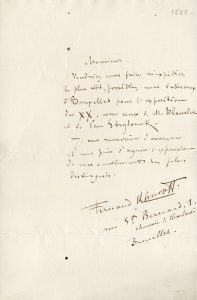 1888
Monsieur
Voudriez vous faire réexpédier
le plus tôt possible, mes tableaux
à Bruxelles pour l'exposition
des XX, avec ceux de M. Blanche
et de Van Strydonck.
Je vous remercie d'avance
et vous prie d'agréer l'expression
de mes sentiments les plus
distingués.
Fernand Khnopff
rue St Bernard, 1.
chaussée de Charleroi
Bruxelles.